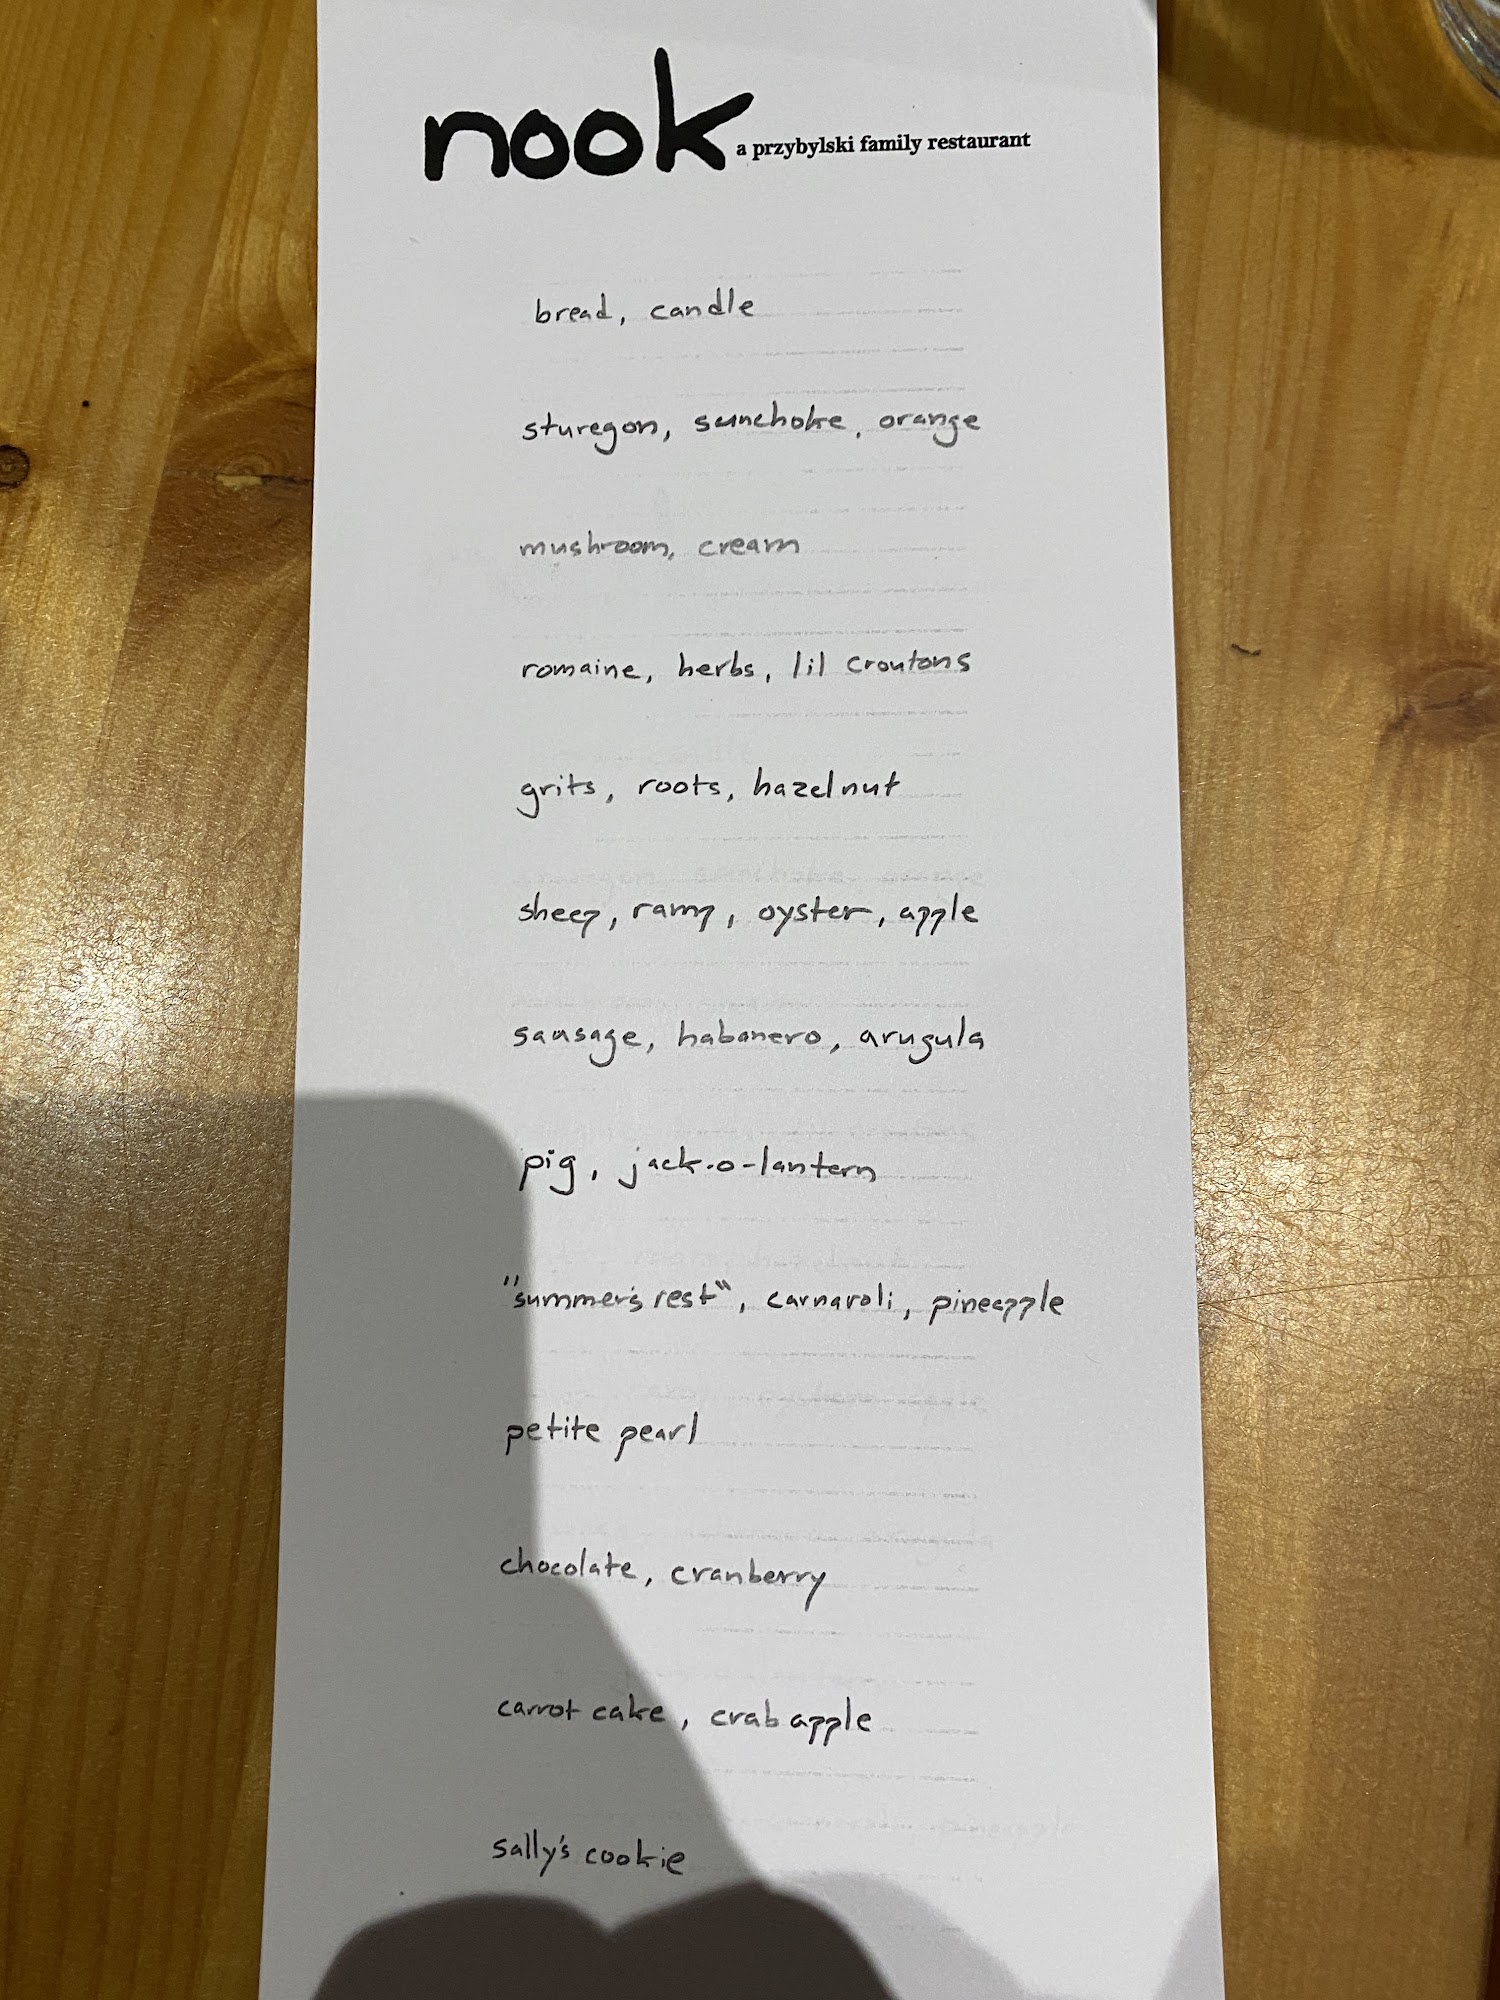 nook a przybylski family restaurant
bread, candle
sturegon, sunchoke, orange
mushroom, cream
romaine, herbs, lil croutons
grits, roots, hazelnut
sheep, ramp, oyster, apple
sausage, habanero, arugula
pig, jack-o-lantern
"summer's rest", carnaroli, pineapple
petite pearl
chocolate, cranberry
carrot cake, crab apple
sally's cookie